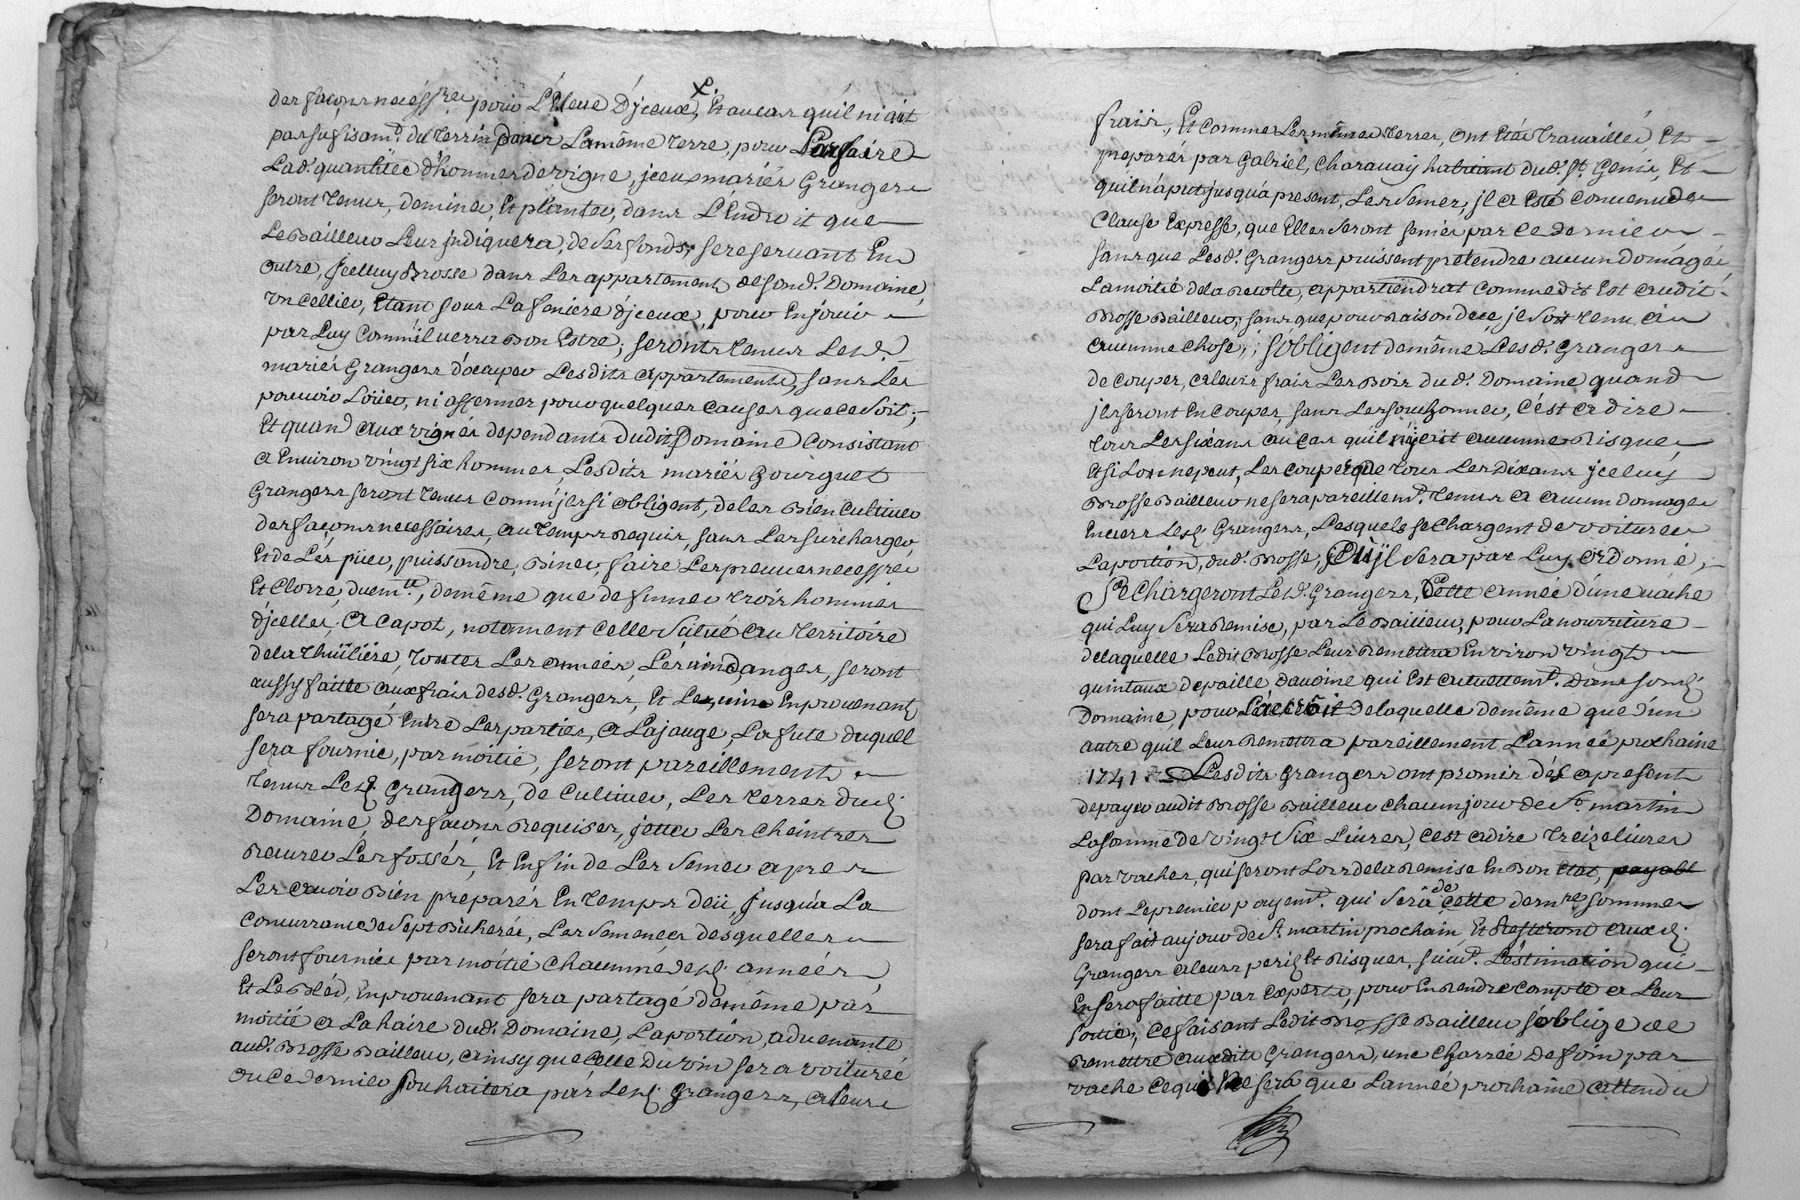 des façons necéss.res pour L'Eleue D'jceux, Et aucas qu'il ni ait
pas sufisam.t du terrin dans La même terre, pour Parfaire
Lad. quantitée d'hommes de vigne, jceux mariés Grangers
seront tenus, de miner, Et planter, dans L'Endroit que
Le Bailleur Leur jndiquera, de ses fonds; se reseruant En
outre, jcelluy Brosse dans Les appartements de son d. Domaine,
un cellier, Etant sous La feniere d'jceux, pour En jouir
par Luy Comm'il verra Bon Estre; seronts tenus Lesd.
mariés Grangers d'ocuper Lesdits appartements, sans Les
pouuoir Loüer, ni affermer pour quelques causes que ce soit;
Et quand aux vignes dependants dudit Domaine Consistant
a Enuiron vingt six hommes, Lesdits mariés Bourguet
Grangers seront tenus Comm'jls si obligent, de les Bien Cultiuer
des façons necessaires, au temps Requis, sans Les surcharger,
Et de Les piier, puissandre, Biner, faire Les preuues necess.res
Et Clorre, duem.te, de même que de fumer trois hommes
d'jcelles, a Capot, notamment celle situé au territoire
de la Thuiliére, toutes Les années, Les vindanges, seront
aussy faitte aux frais desd. Grangers, Et Le vin En prouenant
sera partagé Entre Les parties, a La jauge, La fute duquel
sera fournie, par moitié, seront pareillements
tenus Lesd. Grangers, de Cultiuer, Les terres dud.
Domaine, des façons Requises, jetter Les Cheintres
Recurer Les fossés, Et Enfin de Les semer apres
Les auoir Bien preparés En temps deü, Jusqu'a La
Concurrance de sept Bicherées, Les semences desquelles
seront fournies par moitié Chacunne desd. années
Et Le Bléd, En prouenant sera partagé de même par
moitié a La haire dud. Domaine, La portion, aduenante
aud. Brosse Bailleur, ainsy que Celle du vin sera voiturée
ou Ce dernier souhaitera par Lesd. Grangers, a Leurs
frais, Et Comme Les mêmes terres, ont Etés trauaillés, Et
preparés par Gabriel, Charauay habitant dud. St. Genis, Et
qu'il n'a put jusqu'a present, Les semer, jl a Esté Conuenu de
Clause Expresse, que Elles seront semés par ce dernier
sans que Lesd. Grangers puissent pretendre aucun domâge,
La moitié de la Recolte, appartiendrat comme dit Est audit
Brosse Bailleur; sans que pour Raison de ce, jl soit tenu a
aucunne Chose; s'obligent de même Lesd. Grangers
de Couper, a Leurs frais Les Bois dud. Domaine quand
jls seront En Coupes, sans Les souchonner, C'est a dire
tous Les six ans au cas qu'il n'y ait aucunne Risque
Et si Lon ne peut, Les Couper que tous Les dix ans jceluy
Brosse Bailleur ne sera pareillem.t tenus a aucun domage
Enuers Lesd. Grangers, Lesquels se Chargent de voiturer
La portion, dud. Brosse, ou jl sera par Luy ordonné;
Se Chargeront Lesd. Grangers, Cette année d'une vâche
qui Luy sera Remise, par Le Bailleur, pour La nourriture
de laquelle Ledit Brosse Leur Remettra Enuiron vingt
quintaux de paille Dauoine qui Est actuellem.t dans sond.
Domaine, pour L'accroît de laquelle de même que d'un
autre qu'il Leur Remettra pareillement L'année prochaine
1741 Lesdits Grangers ont promis dés apresent
de payer audit Brosse Bailleur Chacun jour de St. martin
La somme de vingt six Liures, c'est a dire treize liures
par vaches, qui seront Lors de la Remise En Bon Etat, payabl
dont Le premier payem.t qui sera de cette dern.re sommes
sera fait au jour de St. martin prochain Et Resteront auxd.
Grangers a Leurs perils Et Risques, suiu.t L'éstimation qui
En sera faitte par Experts, pour En Rendre Compte a Leur
sortie, Ce faisant Ledit Brosse Bailleur s'oblige de
Remettre auxdits Grangers, une Charrée de foin par
vache Ce qui Ne sera que L'année prochaine attendu